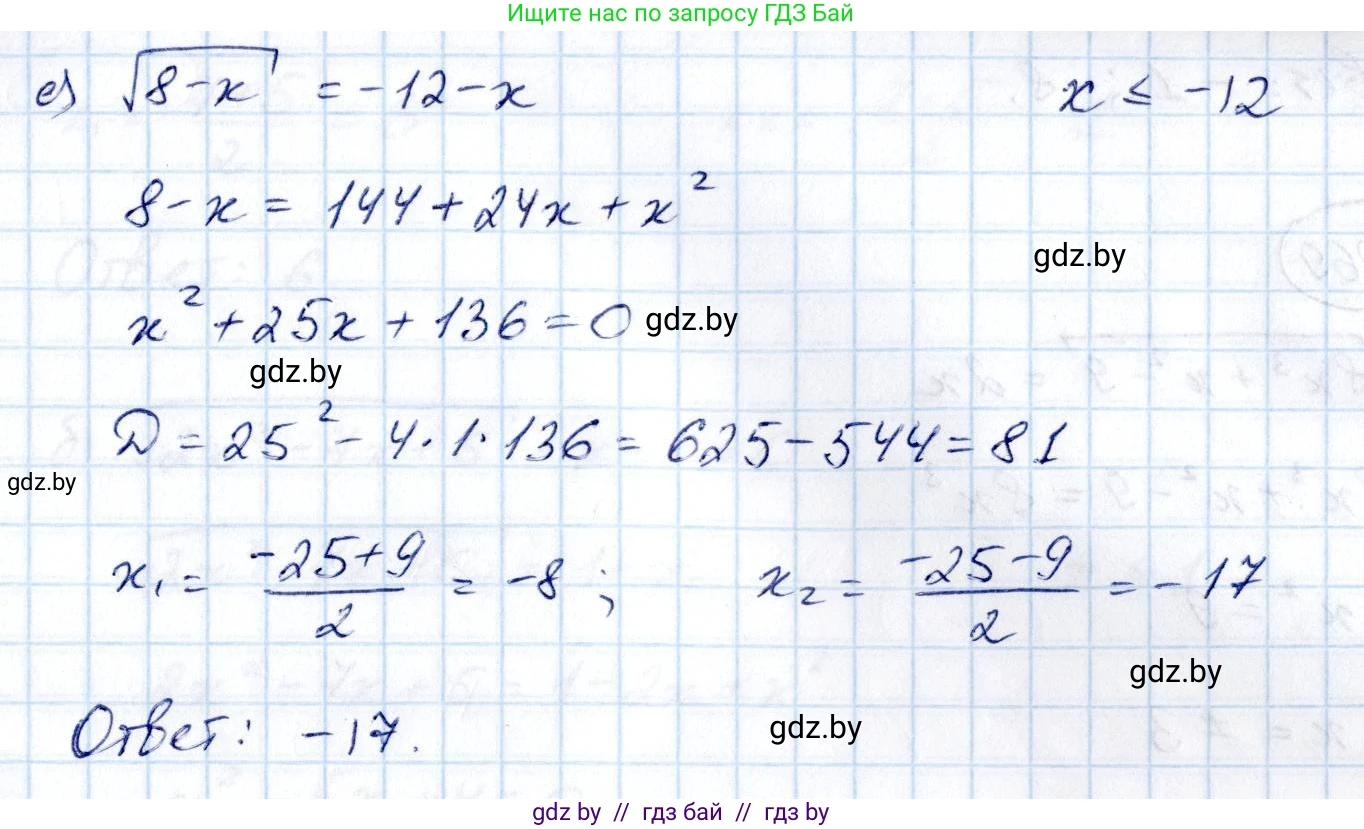 Ищите нас по запросу ГДЗ Бай
е) √(8-x) = -12-x x ≤ -12
8-x = 144+24x+x²
gdz.by
x²+25x+136=0 gdz.by
gdz.by
D = 25²-4·1·136 = 625-544 = 81
gdz.by
x₁ = (-25+9)/2 = -8 ; x₂ = (-25-9)/2 = -17
gdz.by
Ответ: -17.
gdz.by
gdz by // гдз бай // gdz by